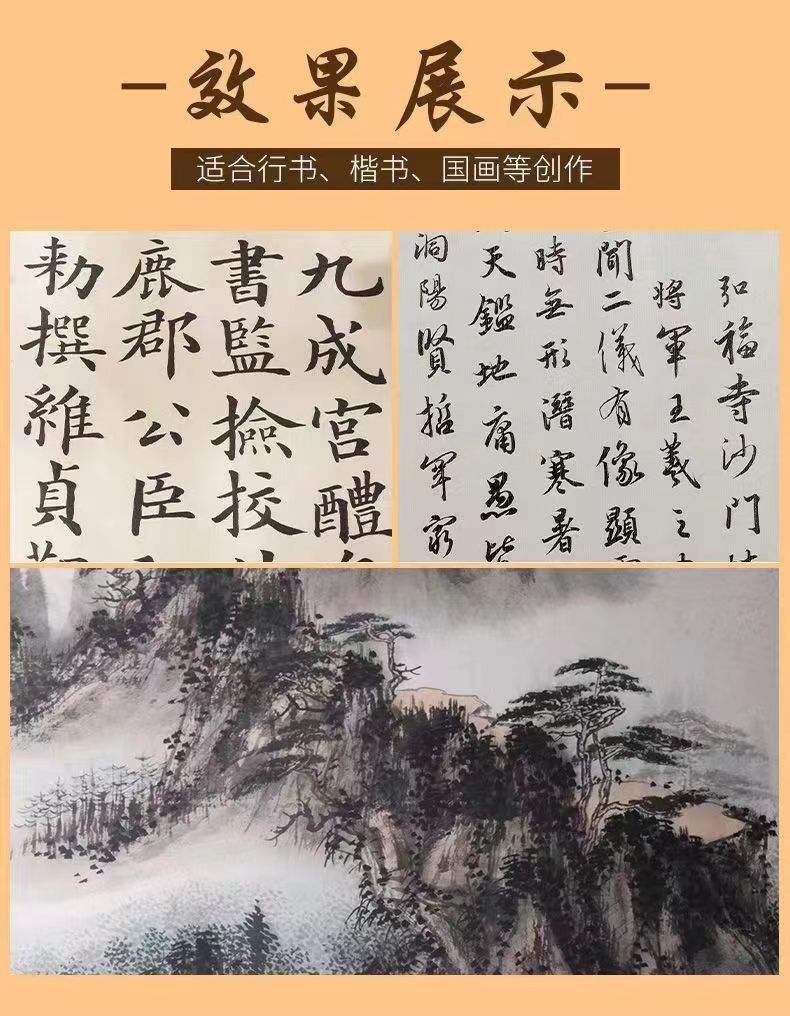 效果展示
适合行书、楷书、国画等创作
九成宫醴
書監撿挍
鹿郡公臣
勑撰維貞
弘福寺沙門
將軍王羲之
閒二儀有像顯
時無形潛寒暑
天鑑地庸愚皆
洞陽賢哲罕窮